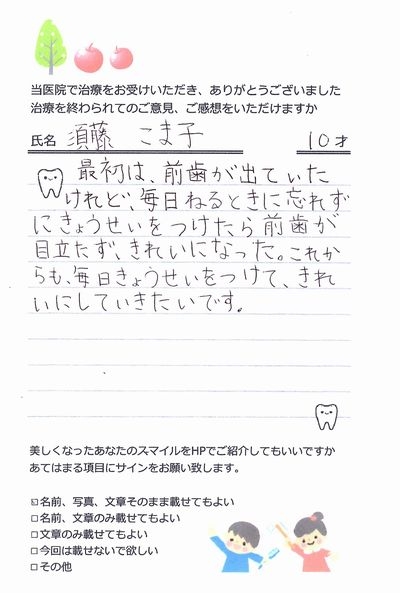 当医院で治療をお受けいただき、ありがとうございました
治療を終わられてのご意見、ご感想をいただけますか
氏名 須藤 こま子 10才
最初は、前歯が出ていた
けれど、毎日ねるときに忘れず
にきょうせいをつけたら前歯が
目立たず、きれいになった。これか
らも、毎日きょうせいをつけて、きれ
いにしていきたいです。
美しくなったあなたのスマイルをHPでご紹介してもいいですか
あてはまる項目にサインをお願い致します。
☑名前、写真、文章そのまま載せてもよい
□名前、文章のみ載せてもよい
□文章のみ載せてもよい
□今回は載せないで欲しい
□その他